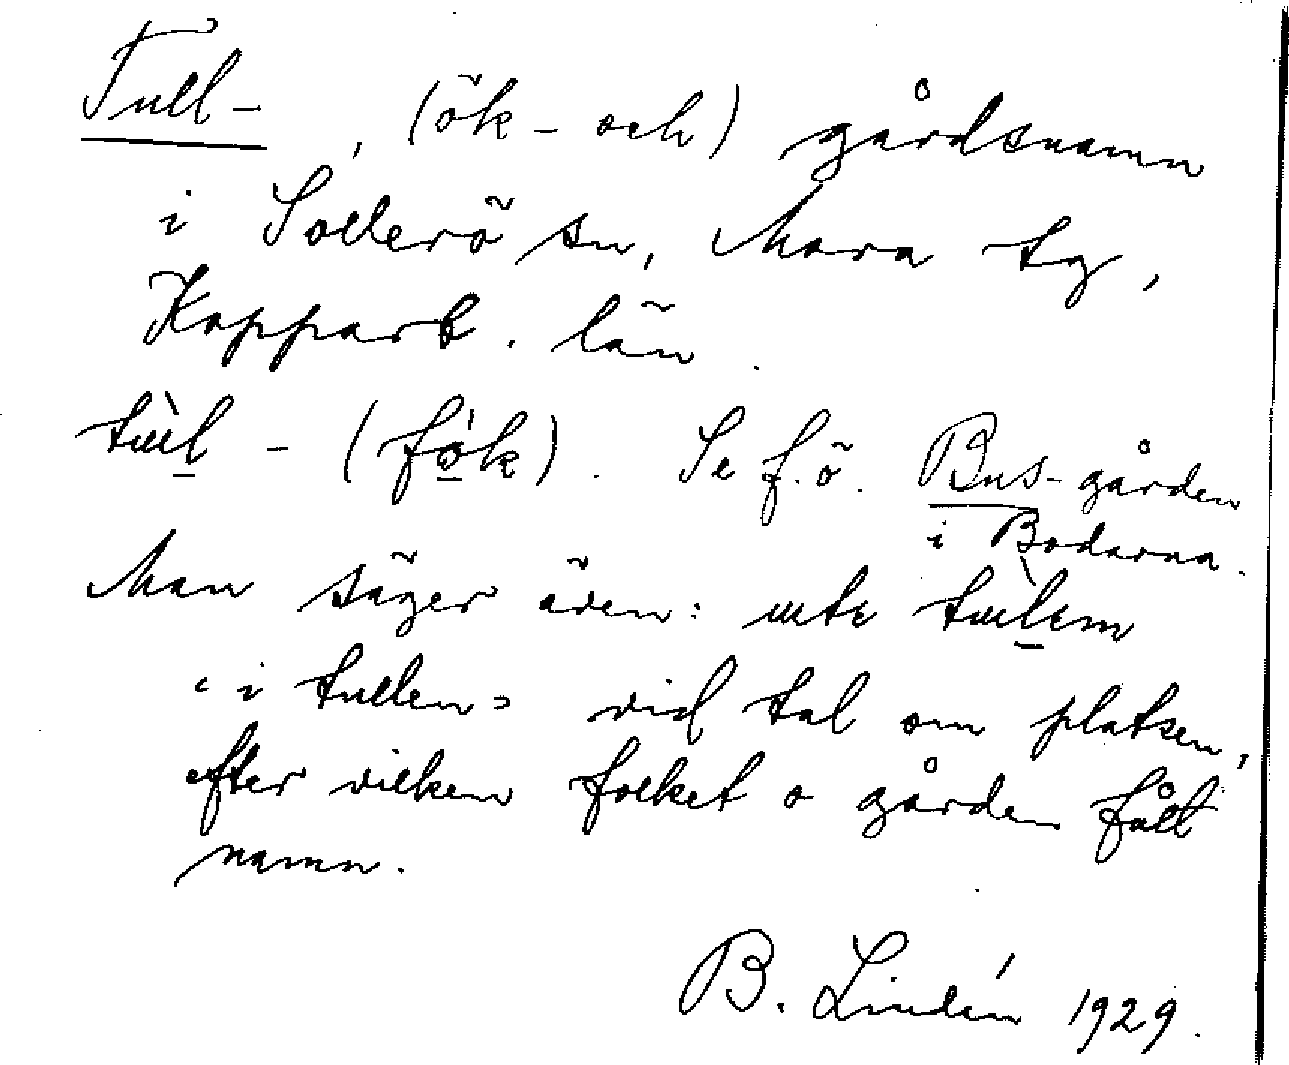 Tull-, (ök- och) gårdsnamn
i Sollerö sn, Mora tg,
Kopparb. län.
tɯ̀l̲ - (fò̲k). Se f.ö. Bus-gården
i Bodarna.
Man säger även: ɯtɛ tɯ̀l̲em
"i tullen" vid tal om platsen,
efter vilken folket o gården fått
namn.
B. Lindén 1929.